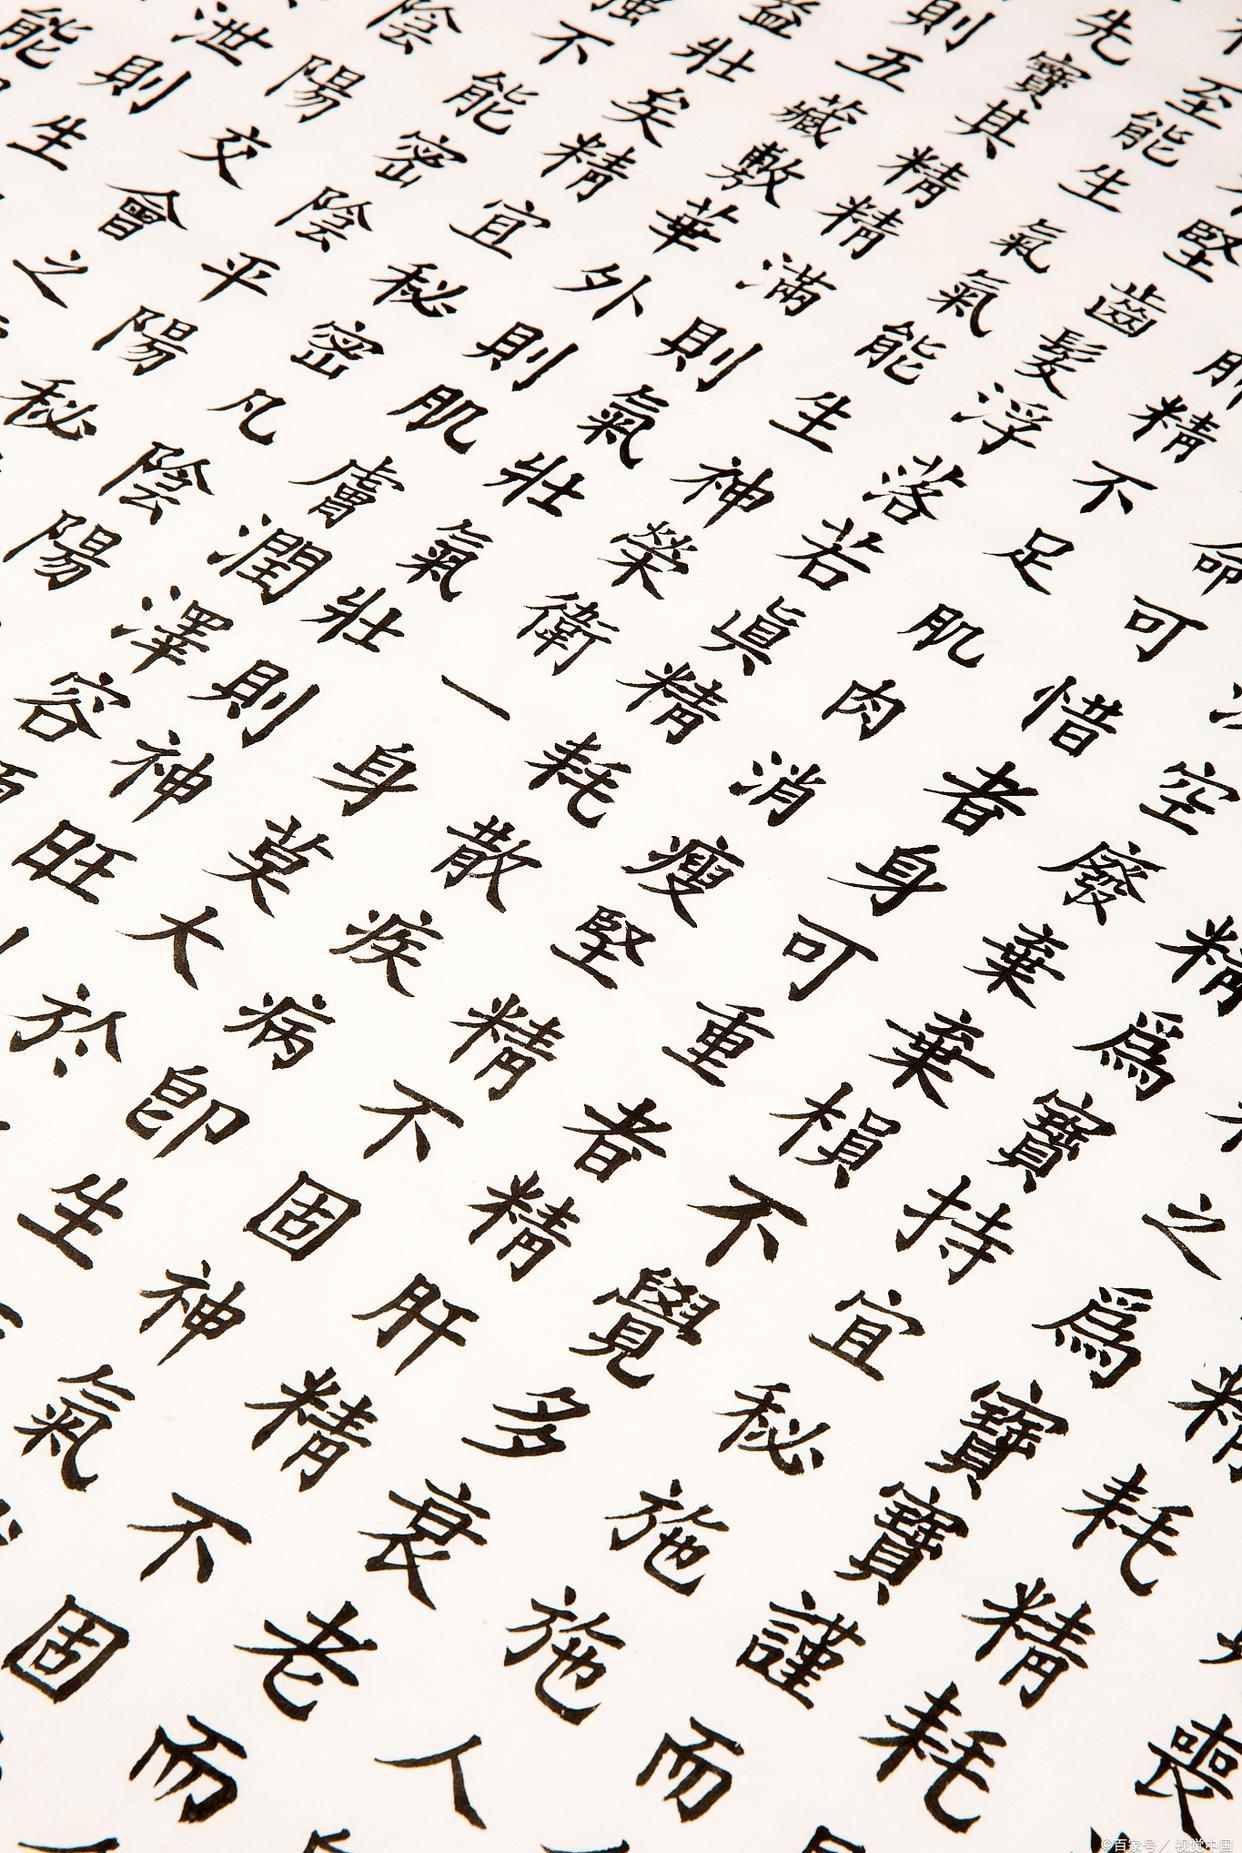 喪
精耗精耗
之爲寶寶謹而
精爲寶持宜秘施施人
空廢棄棄損不覺多衰老而
命可惜者身可重者精肝精不固
精不足肌肉消瘦腎精不固神氣
堅齒髮浮落若眞精耗散疾病即生
至能生氣氣能生神榮衛一身莫大於
先寶其精精滿則氣壯氣壯則神旺
則五藏敷華外則肌膚潤澤容
益壯矣精宜秘密凡陰陽
强不能密陰平陽秘
陰陽交會之
泄則生
能
©百家号／视觉中国